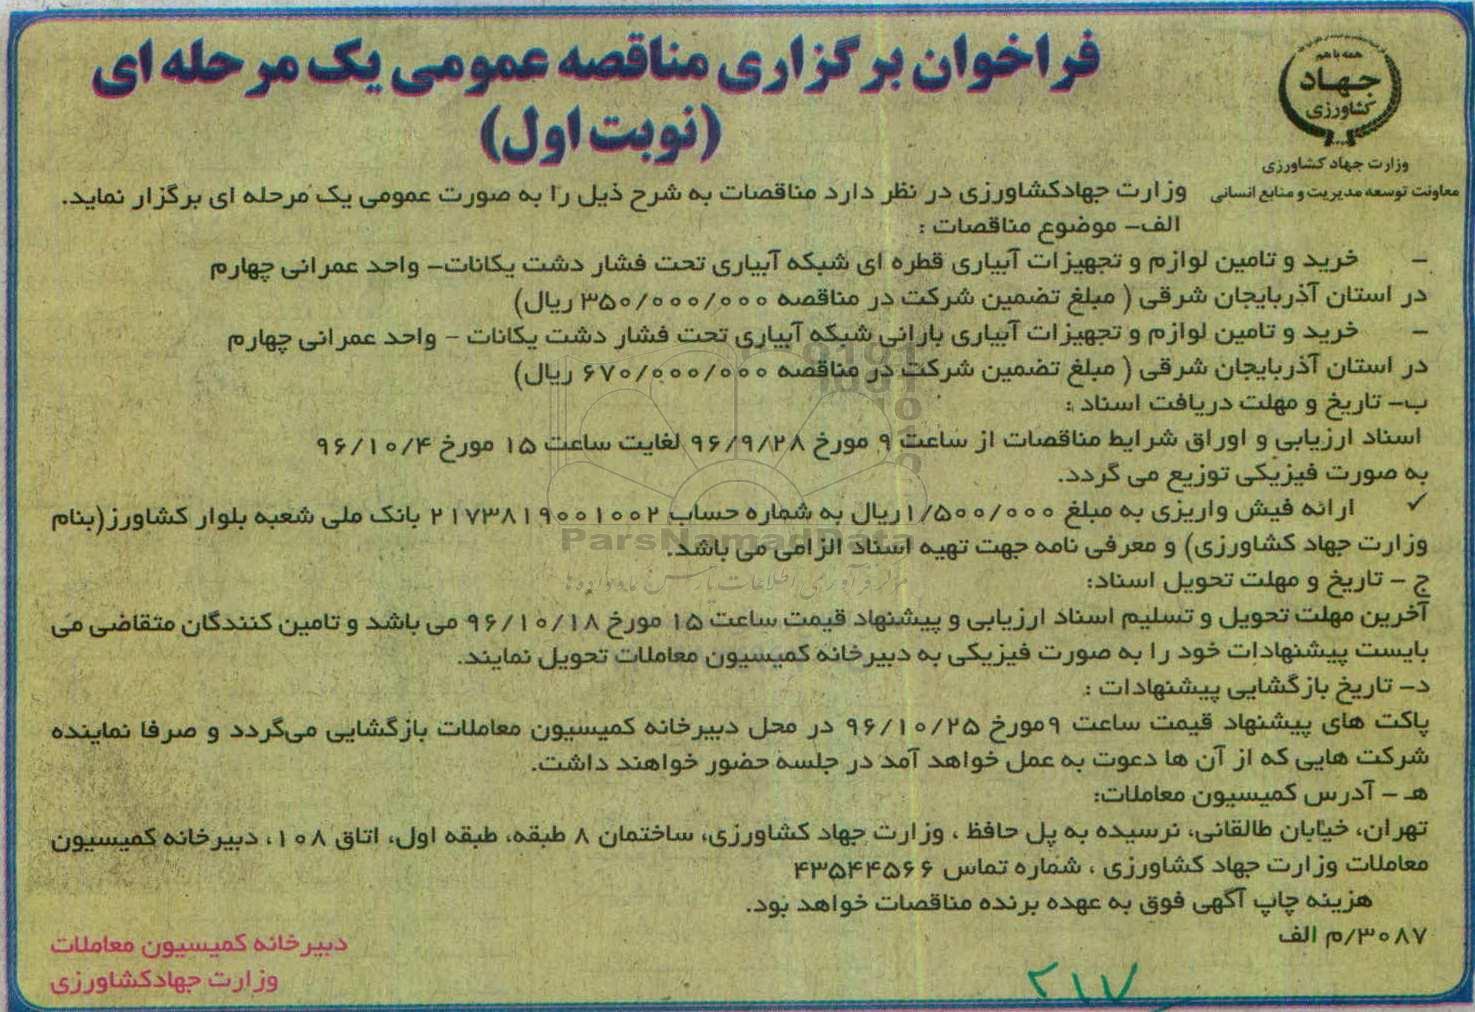 فراخوان برگزاری مناقصه عمومی یک مرحله ای
(نوبت اول)
همه با هم
جهاد
کشاورزی
وزارت جهاد کشاورزی
معاونت توسعه مدیریت و منابع انسانی
وزارت جهادکشاورزی در نظر دارد مناقصات به شرح ذیل را به صورت عمومی یک مرحله ای برگزار نماید.
الف- موضوع مناقصات :
- خرید و تامین لوازم و تجهیزات آبیاری قطره ای شبکه آبیاری تحت فشار دشت یکانات- واحد عمرانی چهارم
در استان آذربایجان شرقی ( مبلغ تضمین شرکت در مناقصه ۳۵۰/۰۰۰/۰۰۰ ریال)
- خرید و تامین لوازم و تجهیزات آبیاری بارانی شبکه آبیاری تحت فشار دشت یکانات - واحد عمرانی چهارم
در استان آذربایجان شرقی ( مبلغ تضمین شرکت در مناقصه ۶۷۰/۰۰۰/۰۰۰ ریال)
ب- تاریخ و مهلت دریافت اسناد :
اسناد ارزیابی و اوراق شرایط مناقصات از ساعت ۹ مورخ ۹۶/۹/۲۸ لغایت ساعت ۱۵ مورخ ۹۶/۱۰/۴
به صورت فیزیکی توزیع می گردد.
✓ ارائه فیش واریزی به مبلغ ۱/۵۰۰/۰۰۰ریال به شماره حساب ۲۱۷۳۸۱۹۰۰۱۰۰۲ بانک ملی شعبه بلوار کشاورز(بنام
وزارت جهاد کشاورزی) و معرفی نامه جهت تهیه اسناد الزامی می باشد.
ParsNamadData
ج - تاریخ و مهلت تحویل اسناد:
آخرین مهلت تحویل و تسلیم اسناد ارزیابی و پیشنهاد قیمت ساعت ۱۵ مورخ ۹۶/۱۰/۱۸ می باشد و تامین کنندگان متقاضی می
بایست پیشنهادات خود را به صورت فیزیکی به دبیرخانه کمیسیون معاملات تحویل نمایند.
د- تاریخ بازگشایی پیشنهادات :
پاکت های پیشنهاد قیمت ساعت ۹مورخ ۹۶/۱۰/۲۵ در محل دبیرخانه کمیسیون معاملات بازگشایی می‌گردد و صرفا نماینده
شرکت هایی که از آن ها دعوت به عمل خواهد آمد در جلسه حضور خواهند داشت.
هـ - آدرس کمیسیون معاملات:
تهران، خیابان طالقانی، نرسیده به پل حافظ ، وزارت جهاد کشاورزی، ساختمان ۸ طبقه، طبقه اول، اتاق ۱۰۸، دبیرخانه کمیسیون
معاملات وزارت جهاد کشاورزی ، شماره تماس ۴۳۵۴۴۵۶۶
هزینه چاپ آگهی فوق به عهده برنده مناقصات خواهد بود.
۳۰۸۷/م الف
دبیرخانه کمیسیون معاملات
وزارت جهادکشاورزی
۲۱۷